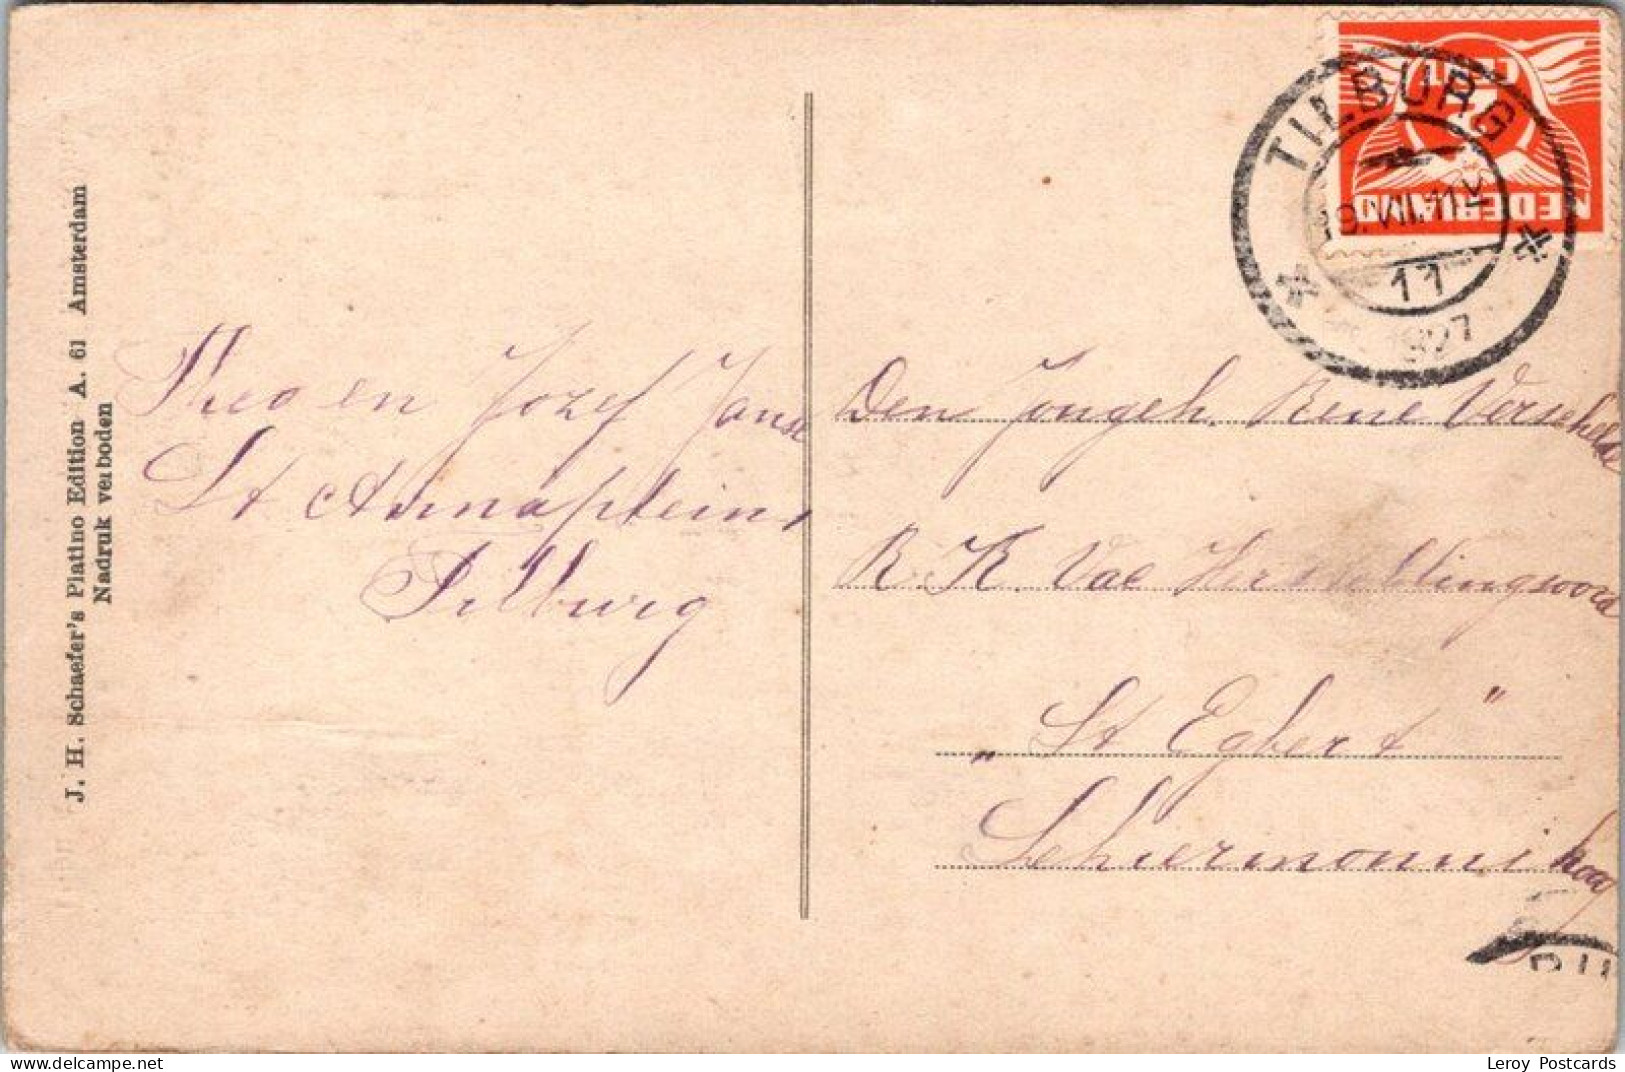 J. H. Schaefer's Platino Edition A. 61 Amsterdam
Nadruk verboden
Theo en Jozef Janse
St Annaplein
Tilburg
CENT
2
NEDERLAND
TILBURG
19.VIII.11V
11
1927
Den Jongeh. Rene Verschelde
R. K. Vac Herstellingsoord
„St Egbert"
Schiermonnikoog
Leroy Postcards